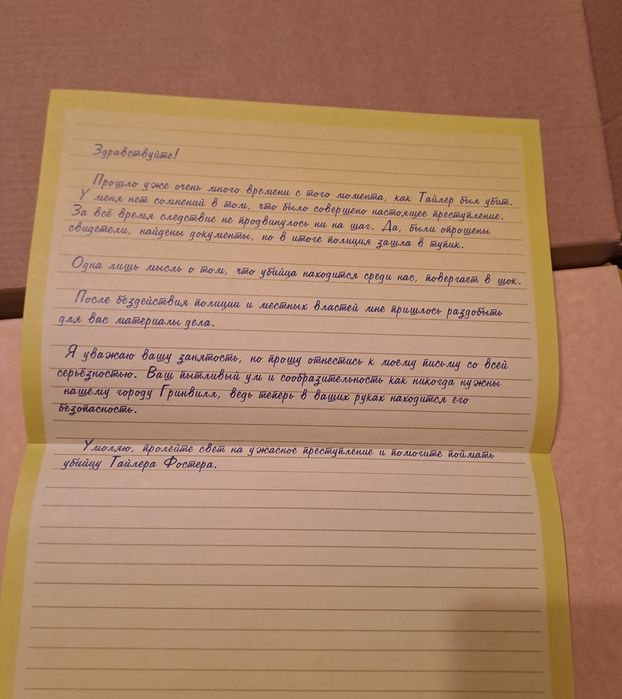 Здравствуйте!
Прошло уже очень много времени с того момента, как Тайлер был убит.
У меня нет сомнений в том, что было совершено настоящее преступление.
За всё время следствие не продвинулось ни на шаг. Да, были опрошены
свидетели, найдены документы, но в итоге полиция зашла в тупик.
Одна лишь мысль о том, что убийца находится среди нас, повергает в шок.
После бездействия полиции и местных властей мне пришлось раздобыть
для вас материалы дела.
Я уважаю вашу занятость, но прошу отнестись к моему письму со всей
серьёзностью. Ваш пытливый ум и сообразительность как никогда нужны
нашему городу Гринвилл, ведь теперь в ваших руках находится его
безопасность.
Умоляю, пролейте свет на ужасное преступление и помогите поймать
убийцу Тайлера Фостера.